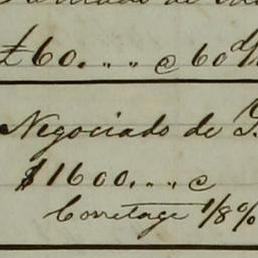 £60. " " @ 60
Negociado de
$1600. " " @
Corretage 1/8%